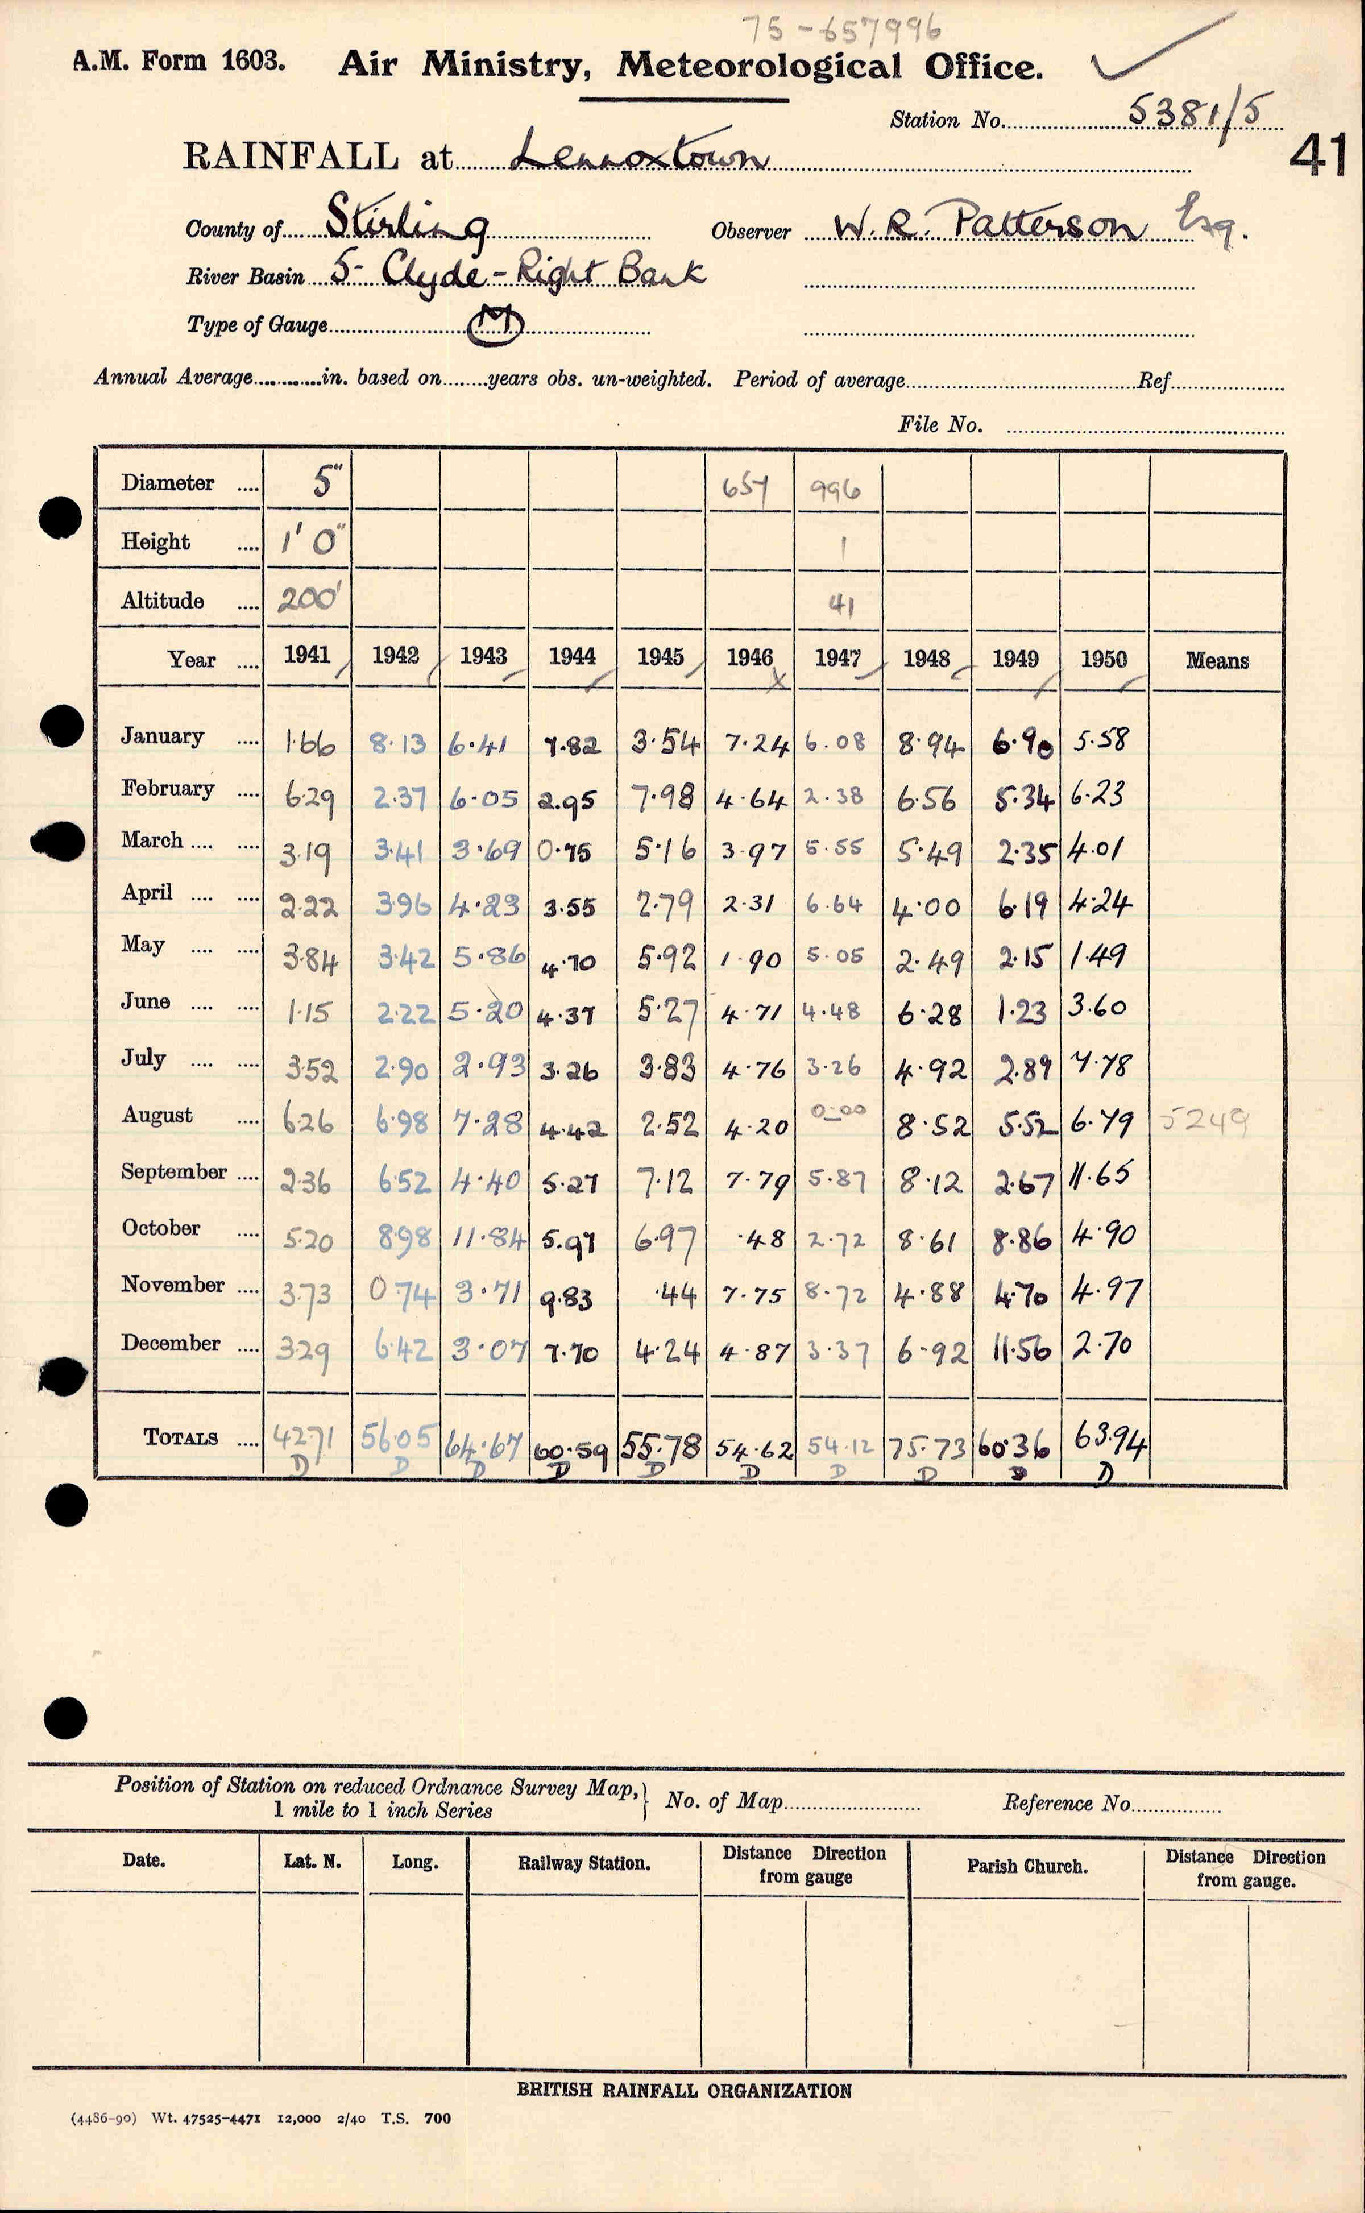 75-657996
A.M. Form 1603. Air Ministry, Meteorological Office.
Station No. 5381/5
41
RAINFALL at Lennoxtown
County of Stirling Observer W. R. Patterson Esq.
River Basin 5- Clyde - Right Bank
Type of Gauge M
Annual Average............in. based on........years obs. un-weighted. Period of average.......... Ref..........
File No. ..........
Diameter .... 5" 657 996
Height .... 1' 0" 1
Altitude .... 200' 41
Year .... 1941 1942 1943 1944 1945 1946 1947 1948 1949 1950 Means
January .... 1.66 8.13 6.41 7.82 3.54 7.24 6.08 8.94 6.90 5.58
February .... 6.29 2.37 6.05 2.95 7.98 4.64 2.38 6.56 5.34 6.23
March .... .... 3.19 3.41 3.69 0.75 5.16 3.97 5.55 5.49 2.35 4.01
April .... .... 2.22 3.96 4.23 3.55 2.79 2.31 6.64 4.00 6.19 4.24
May .... .... 3.84 3.42 5.86 4.70 5.92 1.90 5.05 2.49 2.15 1.49
June .... .... 1.15 2.22 5.20 4.37 5.27 4.71 4.48 6.28 1.23 3.60
July .... .... 3.52 2.90 2.93 3.26 3.83 4.76 3.26 4.92 2.89 7.78
August .... 6.26 6.98 7.28 4.42 2.52 4.20 0.00 8.52 5.52 6.79 5249
September .... 2.36 6.52 4.40 5.27 7.12 7.79 5.87 8.12 2.67 11.65
October .... 5.20 8.98 11.84 5.97 6.97 .48 2.72 8.61 8.86 4.90
November .... 3.73 0.74 3.71 9.83 .44 7.75 8.72 4.88 4.70 4.97
December .... 3.29 6.42 3.07 7.70 4.24 4.87 3.37 6.92 11.56 2.70
TOTALS .... 42.71 56.05 64.67 60.59 55.78 54.62 54.12 75.73 60.36 63.94
D D D D D D D D D D
Position of Station on reduced Ordnance Survey Map, 1 mile to 1 inch Series } No. of Map.......... Reference No..........
Date. Lat. N. Long. Railway Station. Distance Direction from gauge Parish Church. Distance Direction from gauge.
BRITISH RAINFALL ORGANIZATION
(4486-90) Wt. 47525-4471 12,000 2/40 T.S. 700